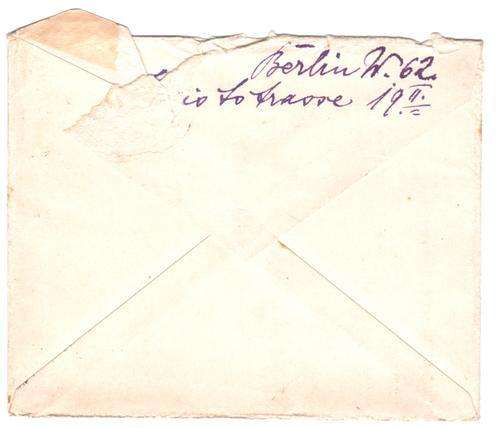 Berlin W. 62.
iststrasse 19 II.